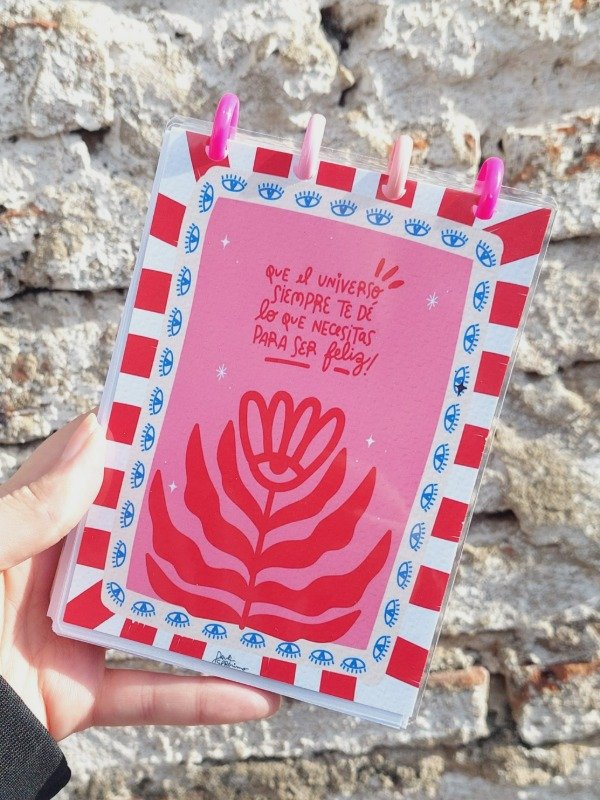 QUE el UNIVERSO
SIEMPRE TE DÉ
lo QUE NECESITAS
PARA SER feliz!